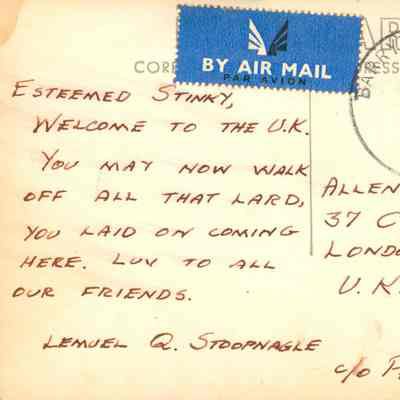 BY AIR MAIL
PAR AVION
ESTEEMED STINKY,
WELCOME TO THE U.K.
YOU MAY NOW WALK
OFF ALL THAT LARD,
YOU LAID ON COMING
HERE. LUV TO ALL
OUR FRIENDS.
LEMUEL Q. STOOPNAGLE
ALLEN
37 C
LONDO
U.K.
c/o P